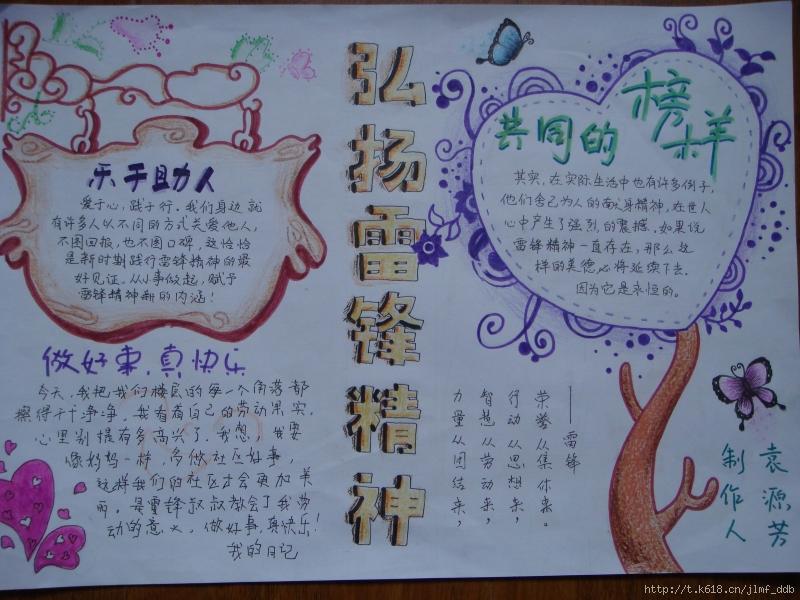 弘扬雷锋精神
乐于助人
爱于心，践于行。我们身边就
有许多人以不同的方式关爱他人，
不图回报，也不图口碑，这恰恰
是新时期践行雷锋精神的最
好见证。从小事做起，赋予
雷锋精神新的内涵！
共同的榜样
其实，在实际生活中也有许多例子，
他们舍己为人的献身精神，在世人
心中产生了强烈的震撼。如果说
雷锋精神一直存在，那么这
样的美德必将延续下去。
因为它是永恒的。
做好事，真快乐
今天，我把我们楼层的每一个角落都
擦得干干净净。我看着自己的劳动果实，
心里别提有多高兴了。我想，我要
像妈妈一样，多做社区好事，
这样我们的社区才会更加美
丽。是雷锋叔叔教会了我劳
动的意义。做好事，真快乐！
我的日记
——雷锋
荣誉从集体来。
行动从思想来，
智慧从劳动来，
力量从团结来，
制作人
袁源芳
http://t.k618.cn/jlmf_ddb